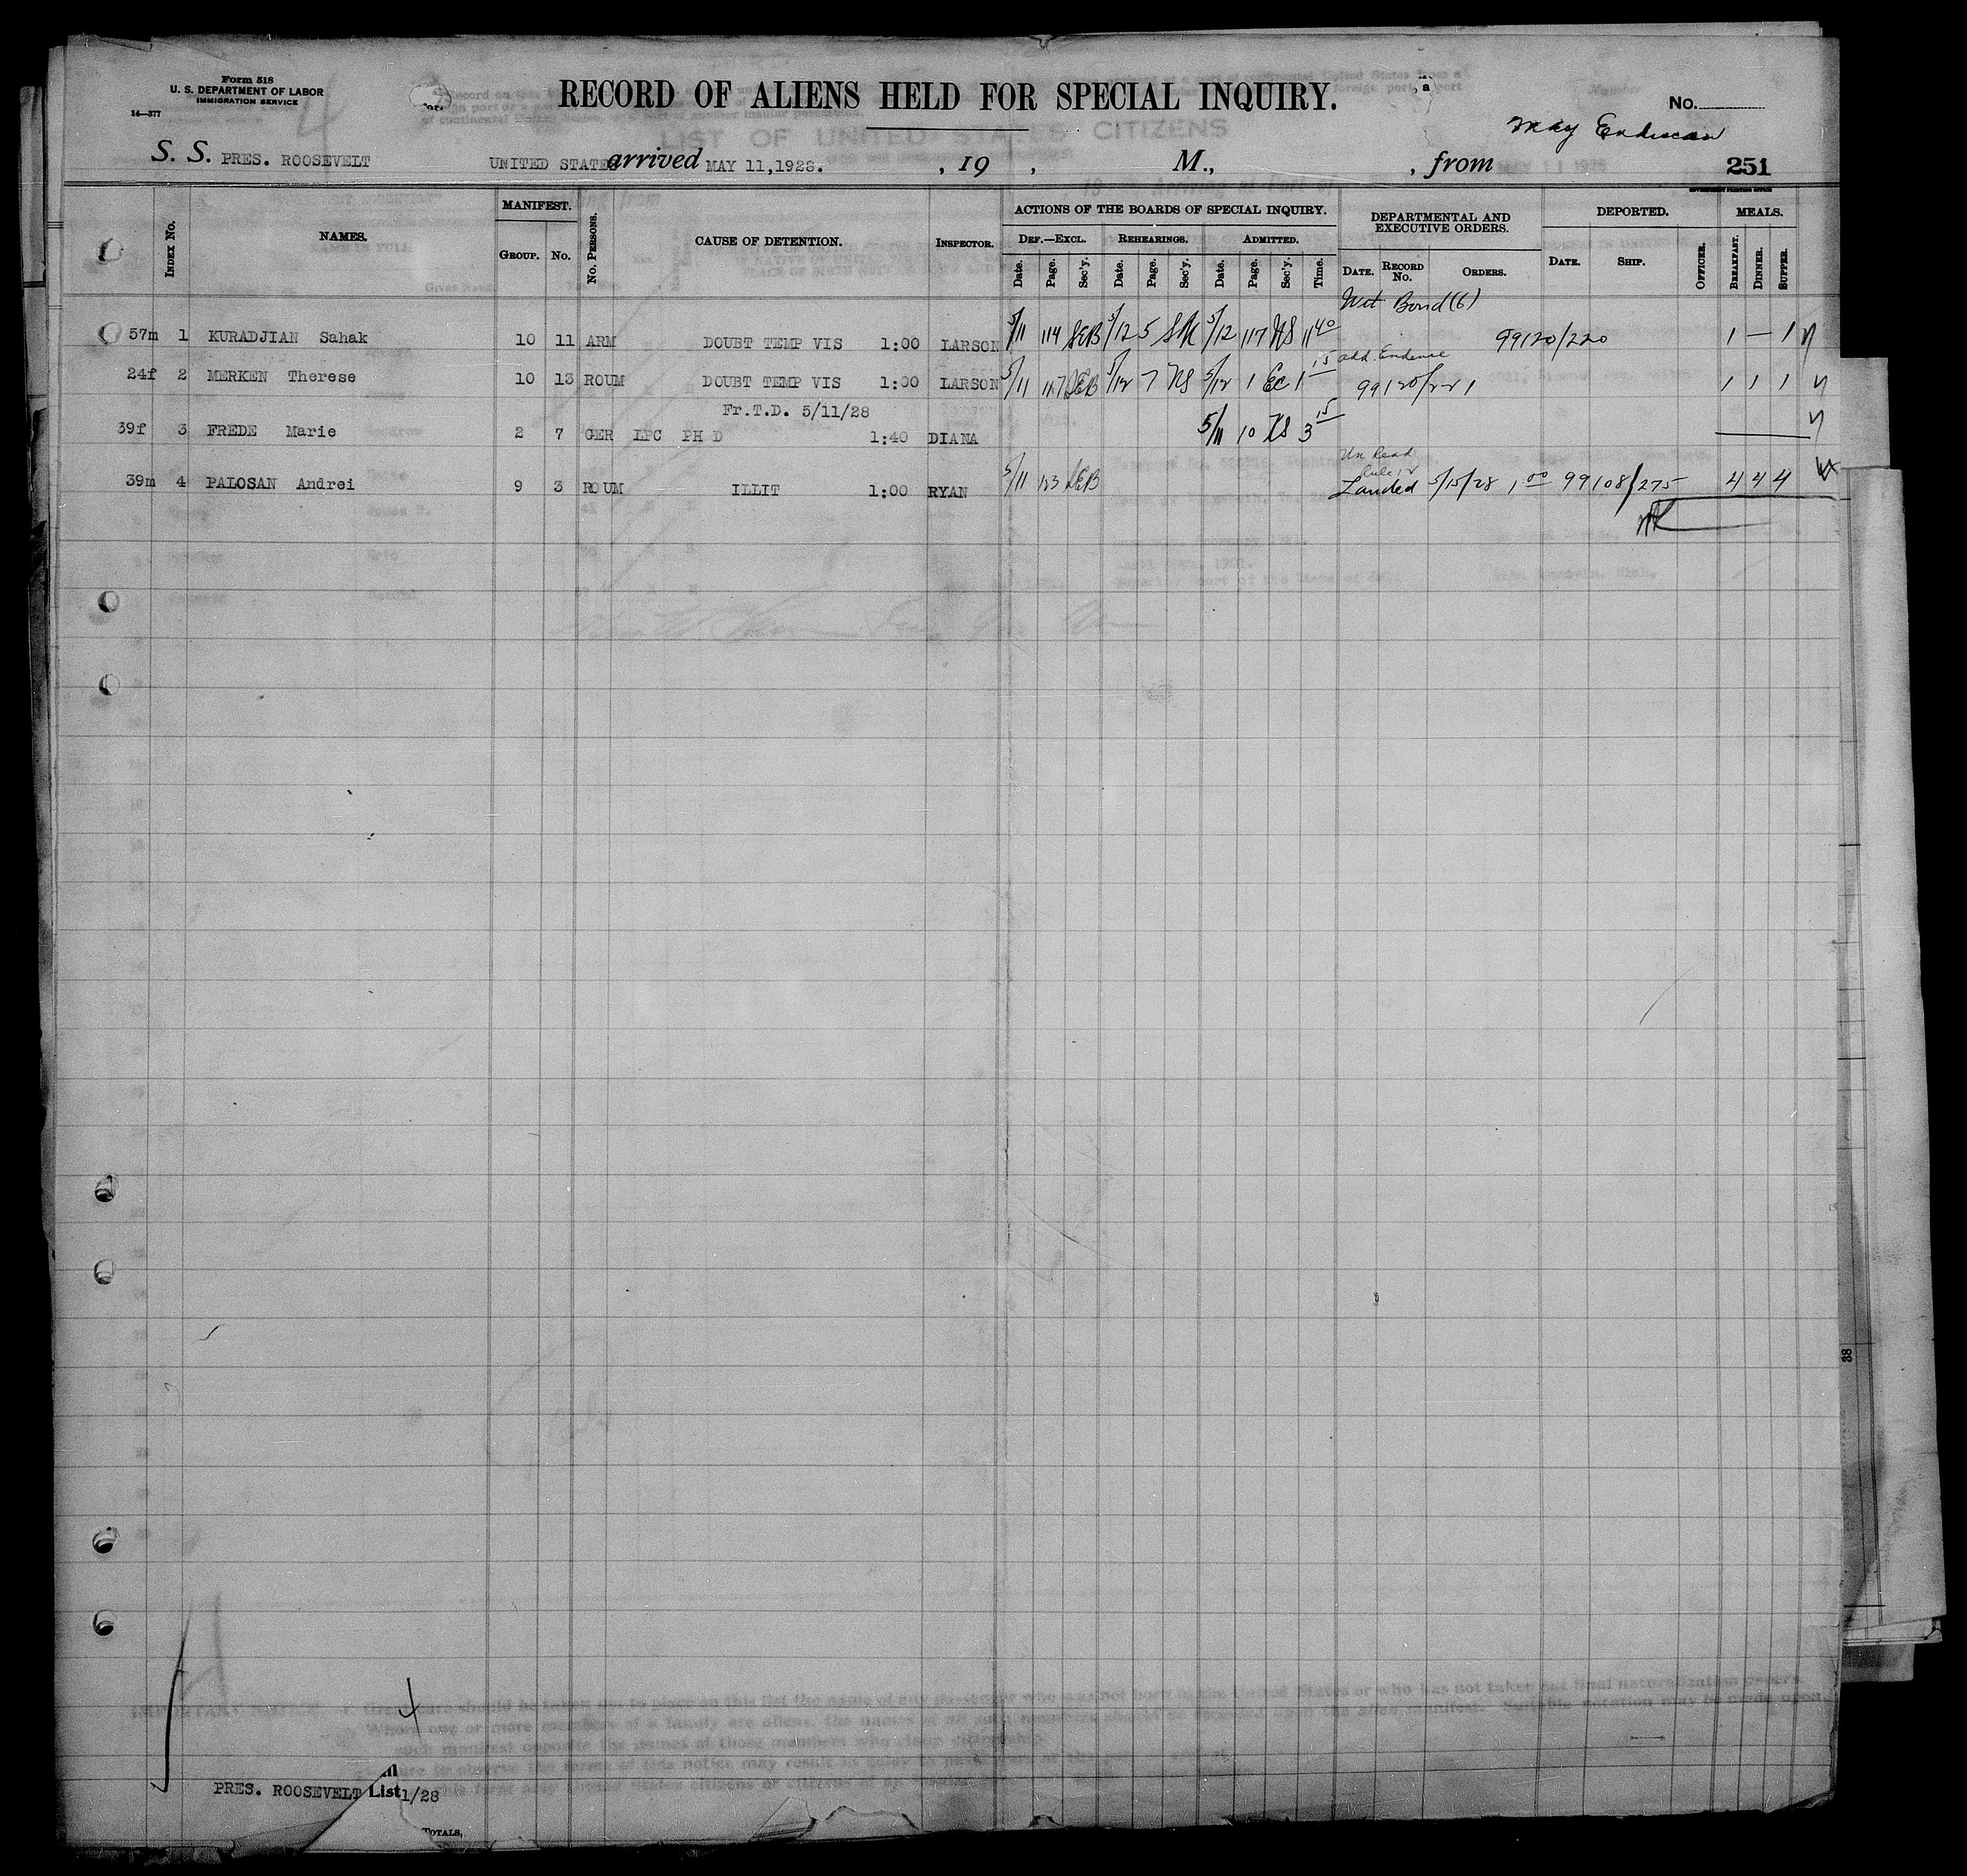 Form 518
U. S. DEPARTMENT OF LABOR
IMMIGRATION SERVICE
14—377
RECORD OF ALIENS HELD FOR SPECIAL INQUIRY.
No.
May
S. S. PRES. ROOSEVELT UNITED STATES arrived MAY 11,1928. , 19 , M., , from 251
GOVERNMENT PRINTING OFFICE
LIST OF UNITED STATES CITIZENS
INDEX No. NAMES. MANIFEST. GROUP. No. No. PERSONS. CAUSE OF DETENTION. INSPECTOR. ACTIONS OF THE BOARDS OF SPECIAL INQUIRY. DEPARTMENTAL AND EXECUTIVE ORDERS. DEPORTED. MEALS.
DEF.—EXCL. REHEARINGS. ADMITTED.
Date. Page. Sec'y. Date. Page. Sec'y. Date. Page. Sec'y. Time. DATE. RECORD No. ORDERS. DATE. SHIP. OFFICER. BREAKFAST. DINNER. SUPPER.
Bond (6)
57m 1 KURADJIAN Sahak 10 11 ARM DOUBT TEMP VIS 1:00 LARSON 5/11 114 SEB 5/12 5 5/12 117 NS 11 40 99120/220 1 — 1
add. Evidence
24f 2 MERKEN Therese 10 13 ROUM DOUBT TEMP VIS 1:00 LARSON 5/11 117 SEB 5/12 7 NS 5/12 1 EC 1 15 99120/221 1 1 1
Fr.T.D. 5/11/28
39f 3 FREDE Marie 2 7 GER LPC PH D 1:40 DIANA 5/11 10 NS 3 15
39m 4 PALOSAN Andrei 9 3 ROUM ILLIT 1:00 RYAN 5/11 123 SEB Landed 5/15/28 1 00 99108/275 4 4 4
38
PRES. ROOSEVELT List 1/28
TOTALS,